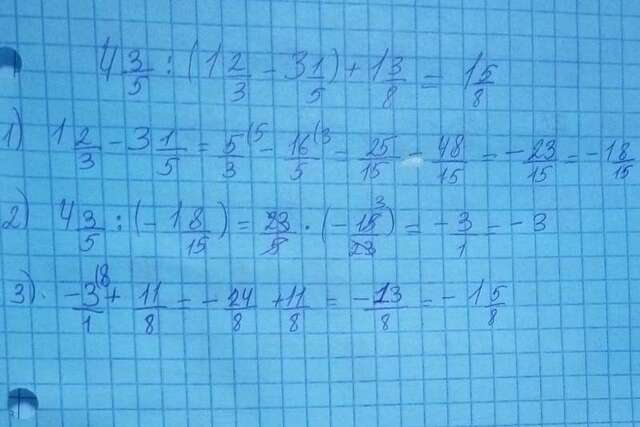 4 3/5 : (1 2/3 - 3 1/5) + 1 3/8 = 1 5/8
1) 1 2/3 - 3 1/5 = 5/3 (5 - 16/5 (3 = 25/15 - 48/15 = - 23/15 = - 1 8/15
2) 4 3/5 : (- 1 8/15) = 23/5 · (- 15/23) 3 = - 3/1 = - 3
3) . - 3/1 (8 + 11/8 = - 24/8 + 11/8 = - 13/8 = - 1 5/8